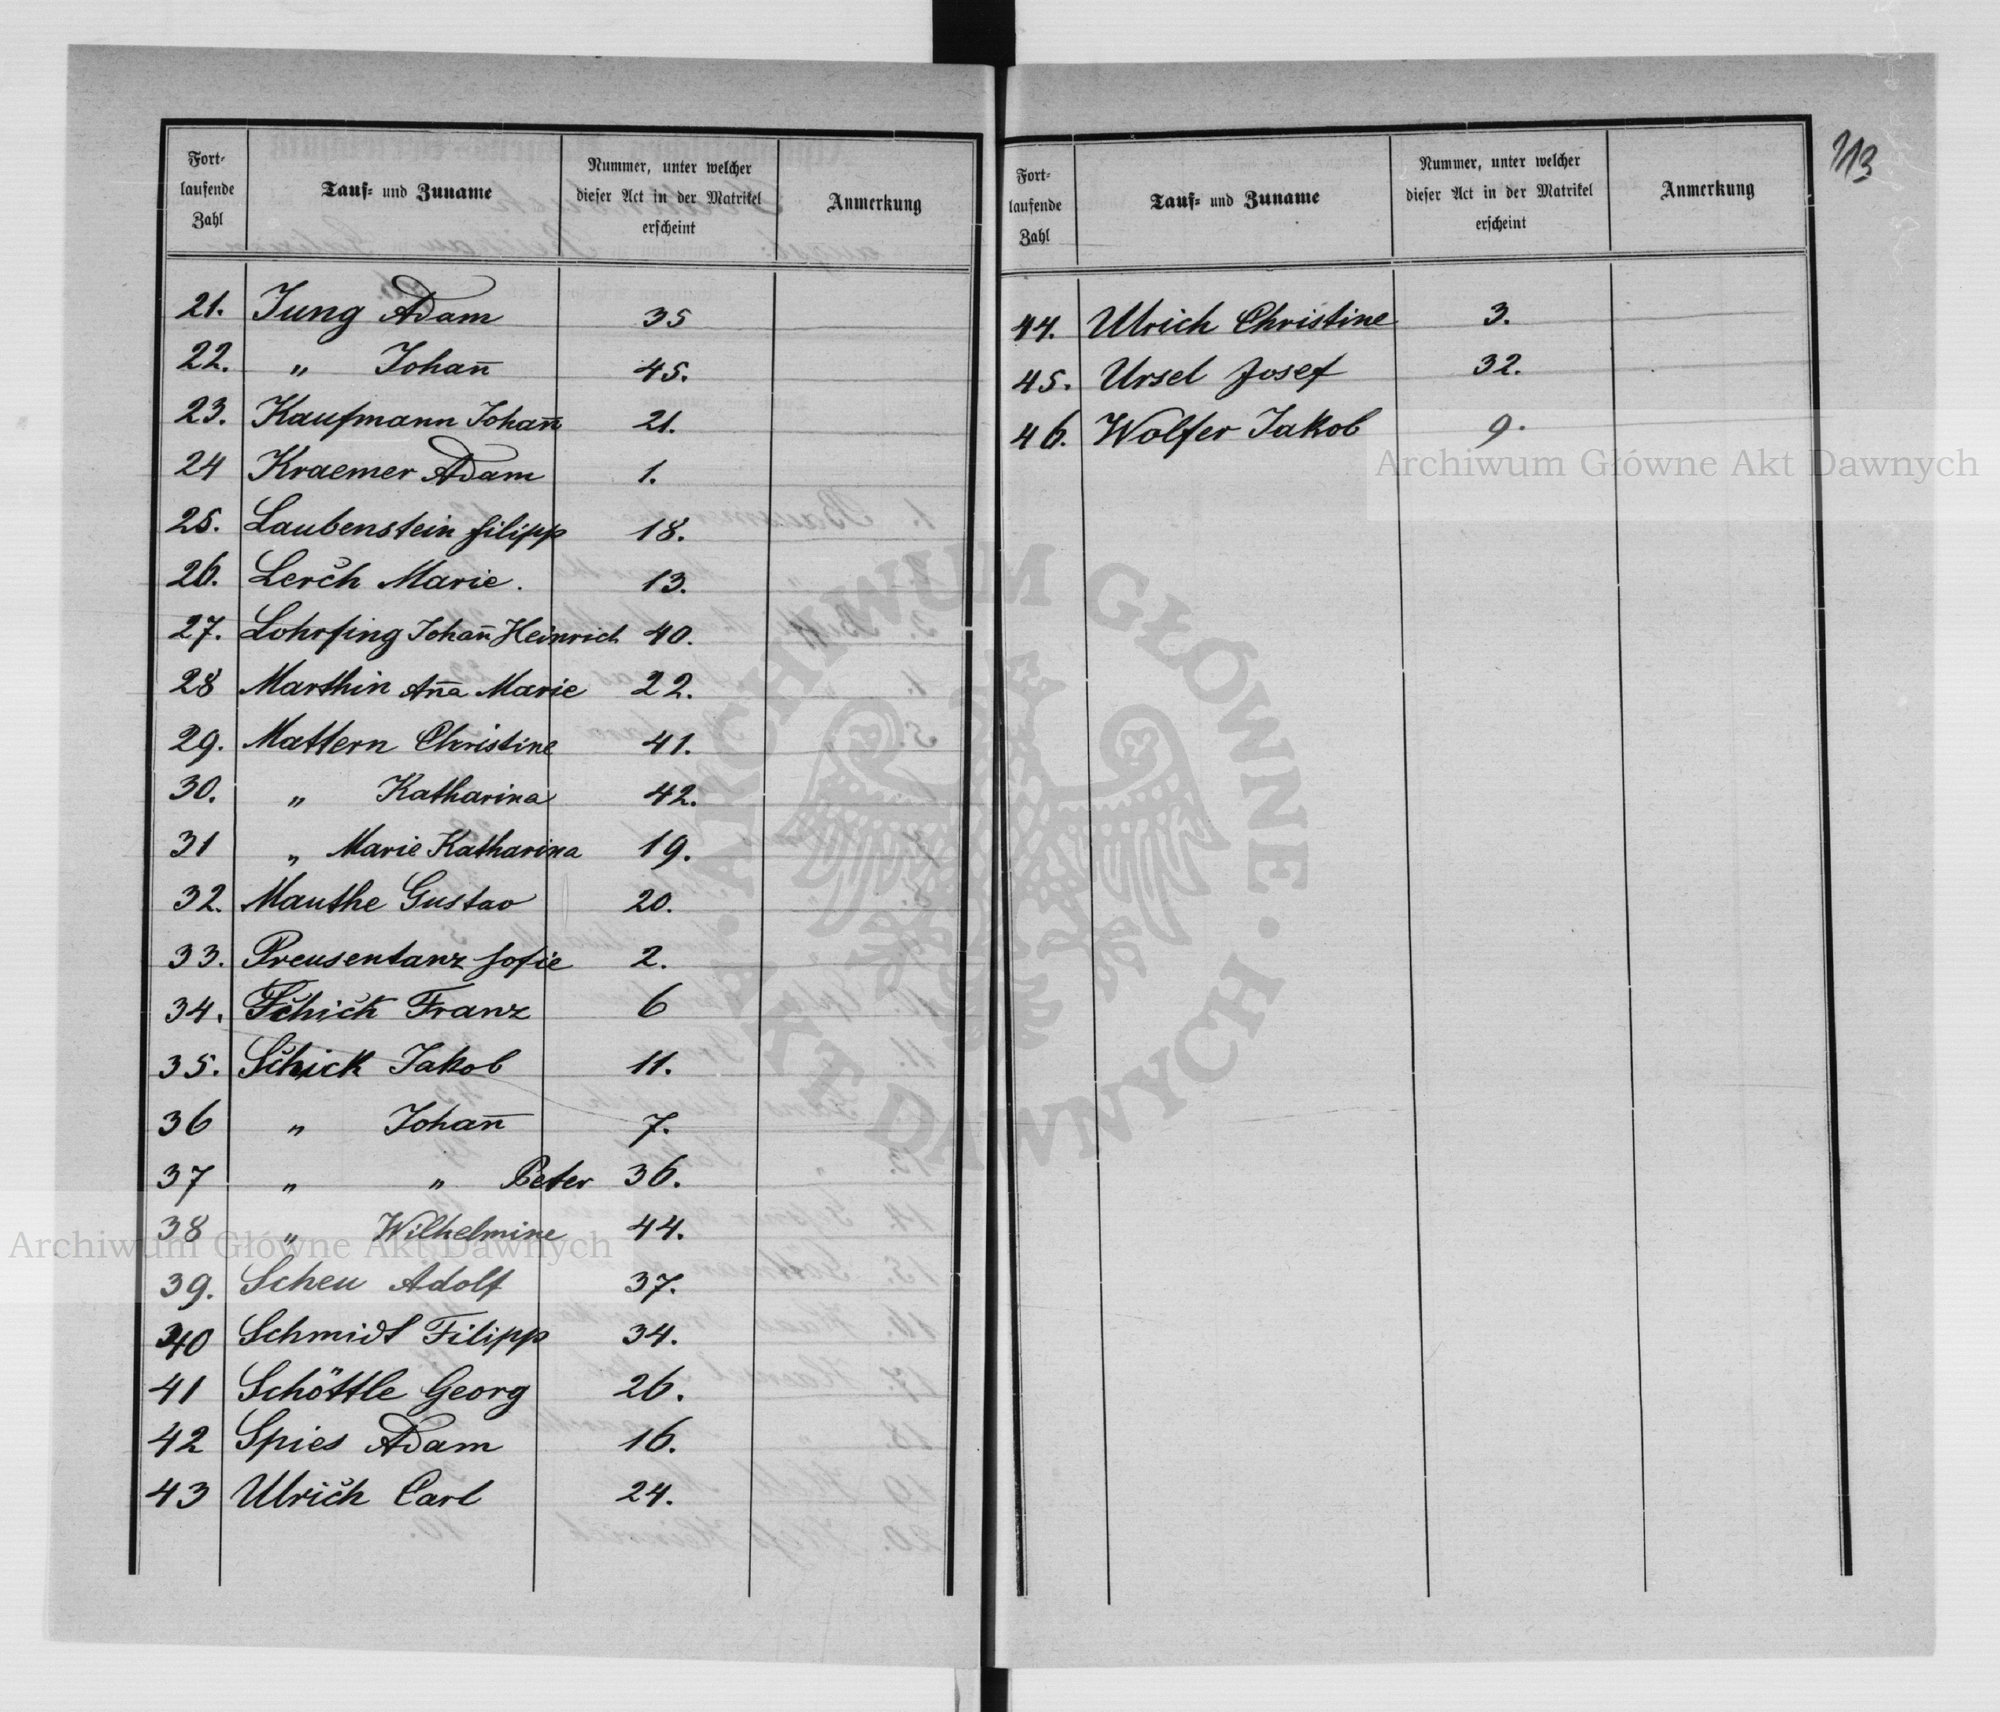 Fort-
laufende
Zahl
Tauf- und Zuname
Nummer, unter welcher
dieser Act in der Matrikel
erscheint
Anmerkung
21. Jung Adam 35
22. " Johan̄ 45.
23. Kaufmann Johan̄ 21.
24 Kraemer Adam 1.
25. Laubenstein Filipp 18.
26. Lerch Marie. 13.
27. Lohrfing Johan̄ Heinrich 40.
28 Marthin An̄a Marie 22.
29. Mattern Christine 41.
30. " Katharina 42.
31 " Marie Katharina 19.
32. Mauthe Gustav 20.
33. Preusentanz Sofie 2.
34. Schick Franz 6
35. Schick Jakob 11.
36 " Johan̄ 7.
37 " " Peter 36.
38 " Wilhelmine 44.
39. Scheu Adolf 37.
40 Schmidt Filipp 34.
41 Schöttle Georg 26.
42 Spies Adam 16.
43 Ulrich Carl 24.
Fort-
laufende
Zahl
Tauf- und Zuname
Nummer, unter welcher
dieser Act in der Matrikel
erscheint
Anmerkung
44. Ulrich Christine 3.
45. Ursel Josef 32.
46. Wolfer Jakob 9.
113
Archiwum Główne Akt Dawnych
ARCHIWUM GŁÓWNE · AKT DAWNYCH ·
Archiwum Główne Akt Dawnych